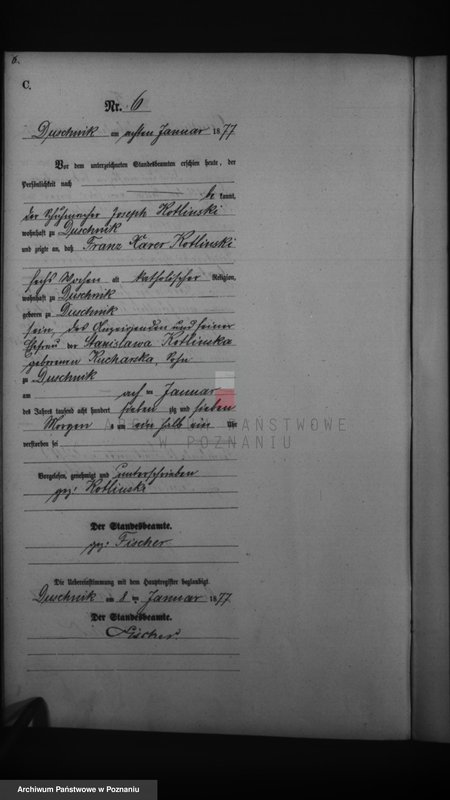 6.
C.
Nr. 6
Duschnik am achten Januar 1877
Vor dem unterzeichneten Standesbeamten erschien heute, der
Persönlichkeit nach
be kannt,
der Schuhmacher Joseph Kotlinski
wohnhaft zu Duschnik
und zeigte an, daß Franz Xaver Kotlinski
sechs Wochen alt katholischer Religion,
wohnhaft zu Duschnik
geboren zu Duschnik
sein, des Anzeigenden und seiner
Ehefrau der Stanislawa Kotlinska
geborenen Kucharska, Sohn
zu Duschnik
am acht ten Januar
des Jahres tausend acht hundert sieben zig und sieben
Morgens um ein halb ein Uhr
verstorben sei
Vorgelesen, genehmigt und unterschrieben
gez: Kotlinski
Der Standesbeamte.
gez: Fischer
Die Uebereinstimmung mit dem Hauptregister beglaubigt.
Duschnik am 8 ten Januar 1877
Der Standesbeamte.
Fischer.
PAŃSTWOWE
W POZNANIU
Archiwum Państwowe w Poznaniu